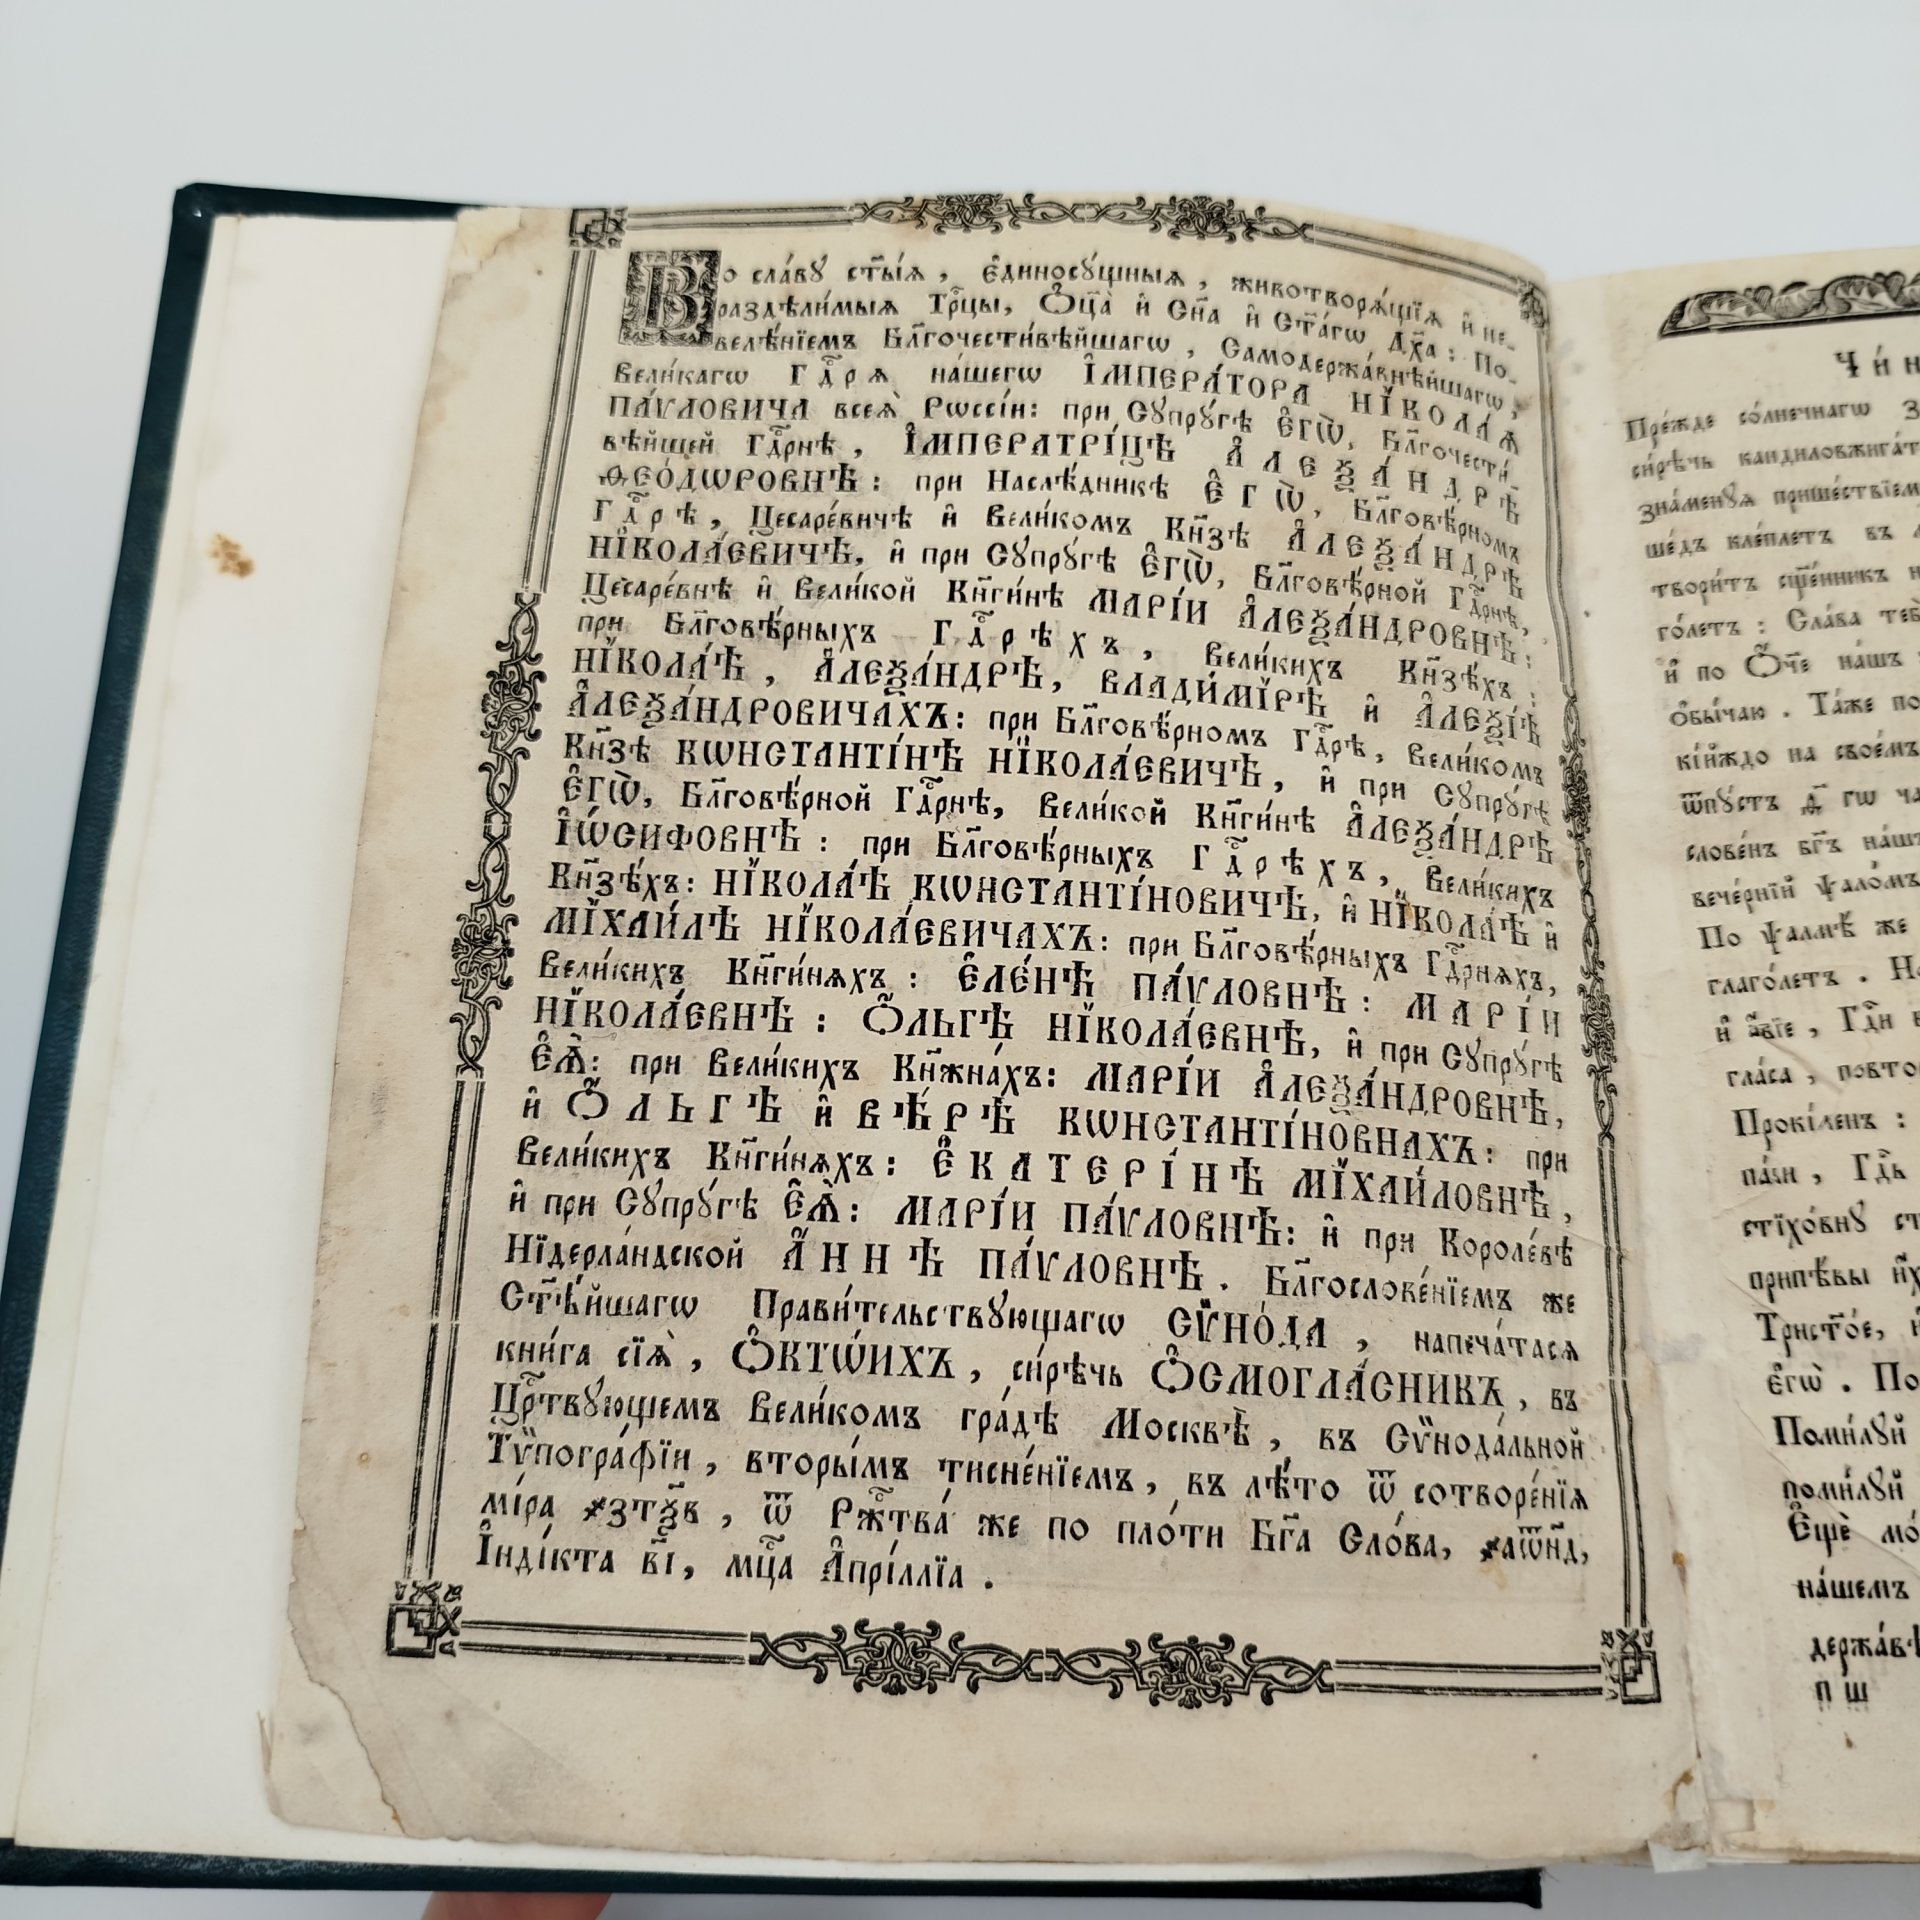 Во сла́вꙋ ст҃ы́ѧ, є҆диносꙋ́щныѧ, животворѧ́щїѧ и҆ не-
раздѣли́мыѧ Трⷪ҇цы, Ѻ҆ц҃а̀ и҆ Сн҃а и҆ Ст҃а́гѡ Дх҃а: По-
велѣ́нїемъ Бл҃гочести́вѣйшагѡ, Самодержа́внѣйшагѡ,
Вели́кагѡ Гдⷭ҇рѧ на́шегѡ І҆МПЕРА́ТОРА НЇКОЛА́Ѧ
ПА́ѴЛОВИЧА всеѧ̀ Рѡссі́и: при Сꙋпрꙋ́гѣ Є҆гѡ̀, Бл҃гочести́-
вѣйшей Гдⷭ҇рнѣ, І҆МПЕРАТРІ́ЦѢ А҆ЛЕѮА́НДРѢ
ѲЕО́ДѠРОВНѢ: при Наслѣ́дникѣ Є҆гѡ̀, Бл҃говѣ́рномъ
Гдⷭ҇рѣ, Цесаре́вичѣ и҆ Вели́комъ Кн҃зѣ А҆ЛЕѮА́НДРѢ
НЇКОЛА́ЕВИЧѢ, и҆ при Сꙋпрꙋ́гѣ Є҆гѡ̀, Бл҃говѣ́рной Гдⷭ҇рнѣ,
Цесаре́внѣ и҆ Вели́кой Кн҃ги́нѣ МАРІ́И А҆ЛЕѮА́НДРОВНѢ:
при Бл҃говѣ́рныхъ Гдⷭ҇рѣхъ, Вели́кихъ Кн҃зѣ́хъ:
НЇКОЛА́Ѣ, А҆ЛЕѮА́НДРѢ, ВЛАДИ́МЇРѢ и҆ А҆ЛЕѮІ́Ѣ
А҆ЛЕѮА́НДРОВИЧАХЪ: при Бл҃говѣ́рномъ Гдⷭ҇рѣ, Вели́комъ
Кн҃зѣ КѠНСТАНТІ́НѢ НЇКОЛА́ЕВИЧѢ, и҆ при Сꙋпрꙋ́гѣ
Є҆гѡ̀, Бл҃говѣ́рной Гдⷭ҇рнѣ, Вели́кой Кн҃ги́нѣ А҆ЛЕѮА́НДРѢ
І҆Ѡ́СИФОВНѢ: при Бл҃говѣ́рныхъ Гдⷭ҇рѣхъ, Вели́кихъ
Кн҃зѣ́хъ: НЇКОЛА́Ѣ КѠНСТАНТІ́НОВИЧѢ, и҆ НЇКОЛА́Ѣ и҆
МЇХАИ́ЛѢ НЇКОЛА́ЕВИЧАХЪ: при Бл҃говѣ́рныхъ Гдⷭ҇рнѧхъ,
Вели́кихъ Кн҃ги́нѧхъ: Є҆ЛЕ́НѢ ПА́ѴЛОВНѢ: МАРІ́И
НЇКОЛА́ЕВНѢ: Ѻ҆́ЛЬГѢ НЇКОЛА́ЕВНѢ, и҆ при Сꙋпрꙋ́гѣ
Є҆Ѧ̀: при Вели́кихъ Кн҃жна́хъ: МАРІ́И А҆ЛЕѮА́НДРОВНѢ,
и҆ Ѻ҆́ЛЬГѢ и҆ ВѢ́РѢ КѠНСТАНТІ́НОВНАХЪ: при
Вели́кихъ Кн҃ги́нѧхъ: Є҆КАТЕРІ́НѢ МЇХАИ́ЛОВНѢ,
и҆ при Сꙋпрꙋ́гѣ Є҆Ѧ̀: МАРІ́И ПА́ѴЛОВНѢ: и҆ при Короле́вѣ
Нїдерла́ндской А҆́ННѢ ПА́ѴЛОВНѢ. Бл҃гослове́нїемъ же
Ст҃ѣ́йшагѡ Прави́тельствꙋющагѡ СѴ̈НО́ДА, напеча́тасѧ
кни́га сїѧ̀, Ѻ҆КТѠ́ИХЪ, си́рѣчь Ѻ҆СМОГЛА́СНИКЪ, въ
Црⷭ҇твꙋющемъ Вели́комъ гра́дѣ Москвѣ̀, въ Сѵ̈нода́льной
Тѵ̈погра́фїи, вторы́мъ тисне́нїемъ, въ лѣ́то ѿ сотворе́нїѧ
мі́ра ҂зтѯ҃в, ѿ Ржⷭ҇тва́ же по пло́ти Бг҃а Сло́ва, ҂аѿн҃д,
І҆нді́кта в҃і, мцⷭ҇а А҆прі́ллїа.
Чи́н
Пре́жде со́лнечнагѡ
си́рѣчь кандиловжига́т
зна́менꙋѧ прише́ствїем
ше́дъ кле́плетъ въ
твори́тъ сщ҃е́нникъ
го́летъ: Сла́ва теб
и҆ по Ѻ҆́ч҃е на́шъ
ѻ҆бы́чаю. Та́же по
кі́йждо на свое́мъ
ѿпꙋ́стъ д҃ гѡ ча
слове́нъ бг҃ъ на́шъ
вече́рнїй ѱало́мъ
По ѱалмѣ̀ же
глаго́летъ. На
и҆ а҆́бїе, Гдⷭ҇и
гла́са, повто
Прокі́менъ:
па́си, Гдⷭ҇ь
стїхо́внꙋ ст
припѣ́вы и҆́х
Трист҃о́е,
є҆гѡ̀. По
Поми́лꙋй
поми́лꙋй
Є҆щѐ мо́
на́шемъ
держа́вѣ